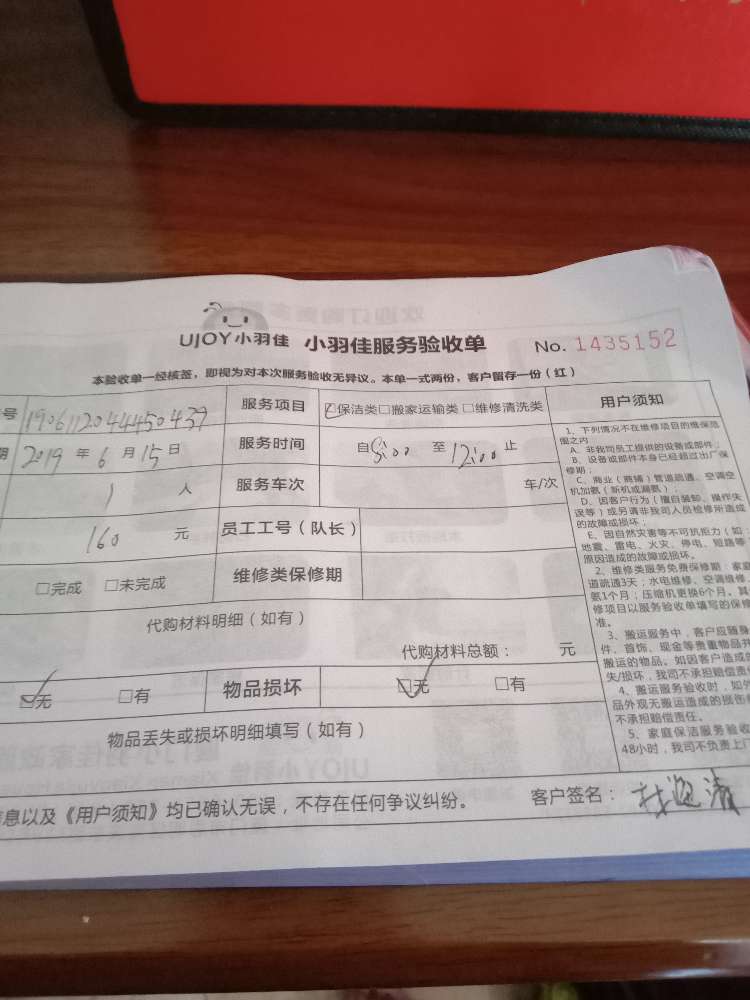 UJOY小羽佳 小羽佳服务验收单 No. 1435152
本验收单一经核签,即视为对本次服务验收无异议。本单一式两份,客户留存一份(红)
号 190611204445043 服务项目 ☑保洁类□搬家运输类□维修清洗类 用户须知
期 2019 年 6 月 15 日 服务时间 自8:00 至 12:00 止
1 人 服务车次 车/次
160 元 员工工号(队长)
□完成 □未完成 维修类保修期
代购材料明细(如有)
代购材料总额: 元
☑无 □有 物品损坏 ☑无 □有
物品丢失或损坏明细填写(如有)
信息以及《用户须知》均已确认无误,不存在任何争议纠纷。 客户签名:
1、下列情况不在维修项目的维保范
围之内
A、非我司员工提供的设备或部件;
B、设备或部件本身已经超过出厂保
修期;
C、商业(商铺)管道疏通、空调空
机加氨(新机或漏氨);
D、因客户行为(擅自装卸、操作失
误等)或另请非我司人员检修所造成
的故障或损坏;
E、因自然灾害等不可抗拒力(如
地震、雷电、火灾、停电、短路等
原因造成的故障或损坏。
2、维修类服务免费保修期:家庭
道疏通3天;水电维修、空调维修
氨1个月;压缩机更换6个月。其
修项目以服务验收单填写的保修
准。
3、搬运服务中,客户应随身
件、首饰、现金等贵重物品开
搬运的物品。如因客户造成的
失/损坏,我司不承担赔偿责
4、搬运服务验收时,如外
品外观无搬运造成的损伤
不承担赔偿责任。
5、家庭保洁服务验收
48小时,我司不负责上门